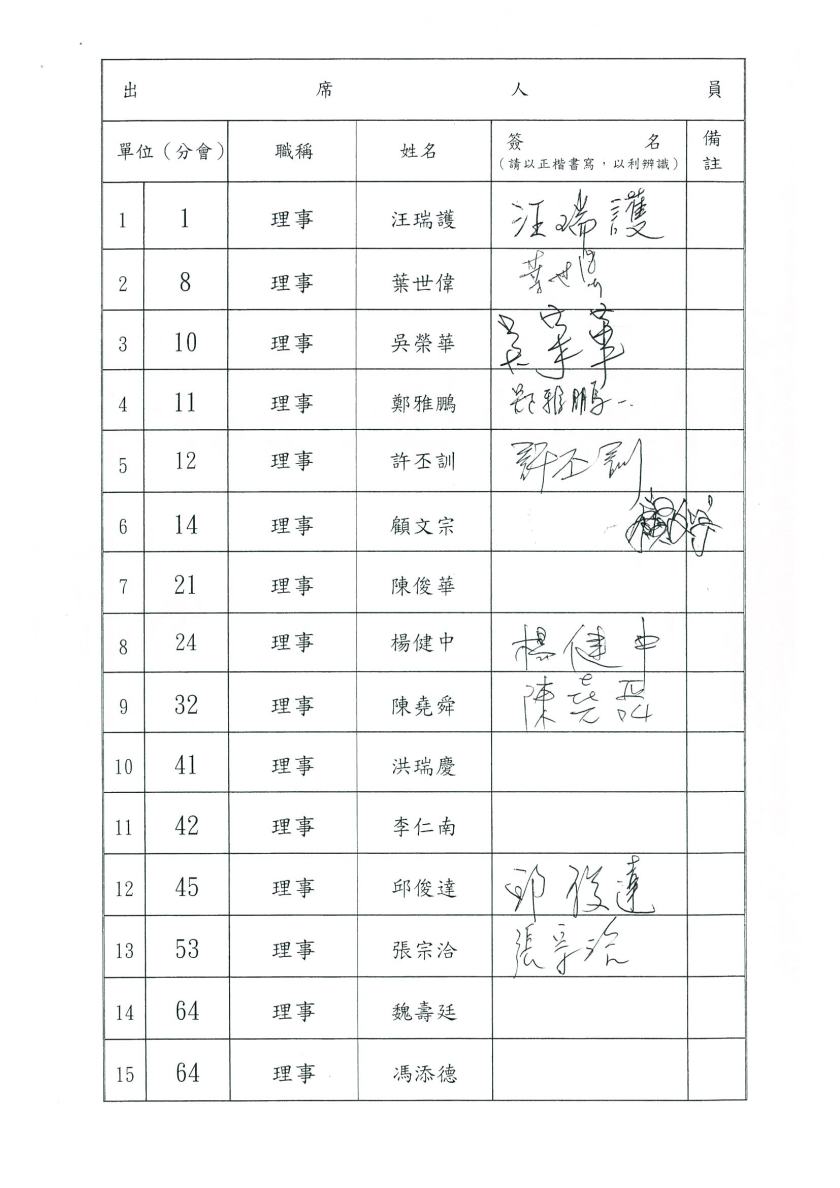 出 席 人 員
單位（分會） 職稱 姓名 簽 名 備註
（請以正楷書寫，以利辨識）
1 1 理事 汪瑞護 汪瑞護
2 8 理事 葉世偉 葉世偉
3 10 理事 吳榮華 吳榮華
4 11 理事 鄭雅鵬 鄭雅鵬
5 12 理事 許丕訓 許丕訓
6 14 理事 顧文宗
7 21 理事 陳俊華
8 24 理事 楊健中 楊健中
9 32 理事 陳堯舜 陳堯舜
10 41 理事 洪瑞慶
11 42 理事 李仁南
12 45 理事 邱俊達 邱俊達
13 53 理事 張宗洽 張宗洽
14 64 理事 魏壽廷
15 64 理事 馮添德